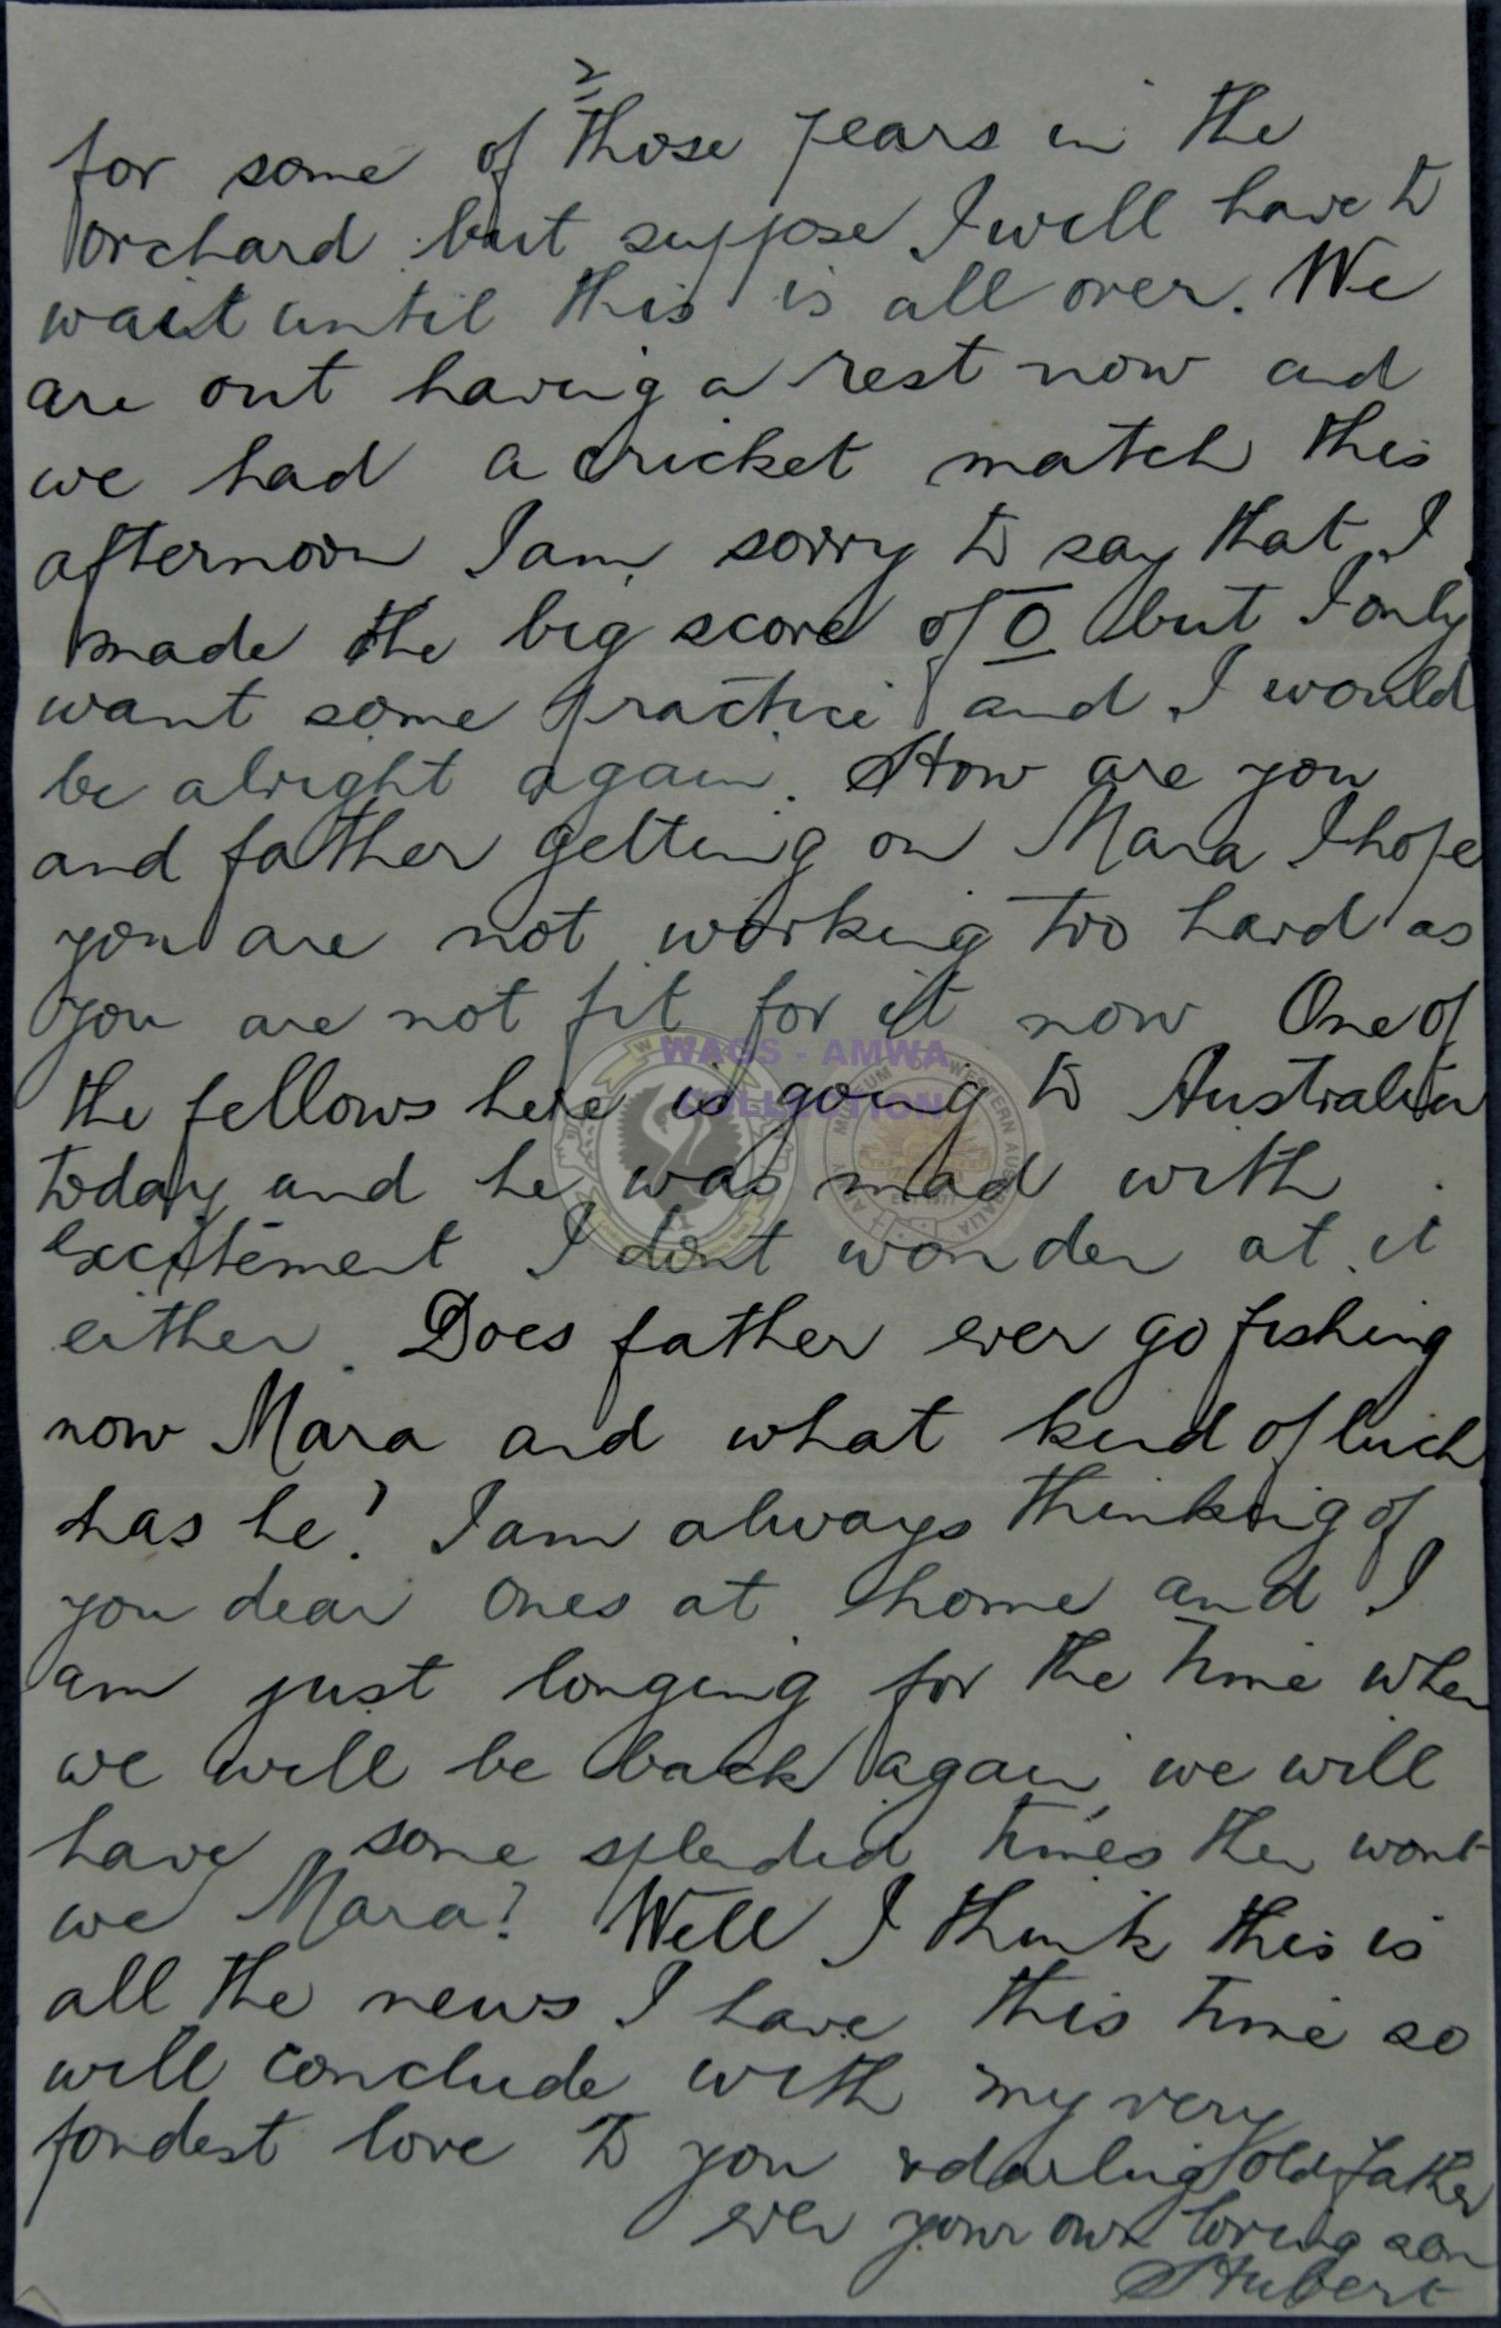 2
for some of those pears in the
orchard but suppose I will have to
wait until this is all over. We
are out having a rest now and
we had a cricket match this
afternoon I am sorry to say that I
made the big score of 0 but I only
want some practice and I would
be alright again. How are you
and father getting on Mara I hope
you are not working too hard as
you are not fit for it now One of
the fellows here is going to Australia
today and he was mad with
excitement I dont wonder at it
either. Does father ever go fishing
now Mara and what kind of luck
has he? I am always thinking of
you dear ones at home and I
am just longing for the time when
we will be back again we will
have some splended times then wont
we Mara? Well I think this is
all the news I have this time so
will conclude with my very
fondest love to you & darling old father
ever your own loving son
Hubert
WAGS - AMWA
COLLECTION